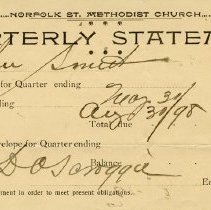 NORFOLK ST. METHODIST CHURCH
TERLY STATEM
Smith
for Quarter ending
nding
Aug 31/98
Total due
velope for Quarter ending
Balance
En
ment in order to meet present obligations.